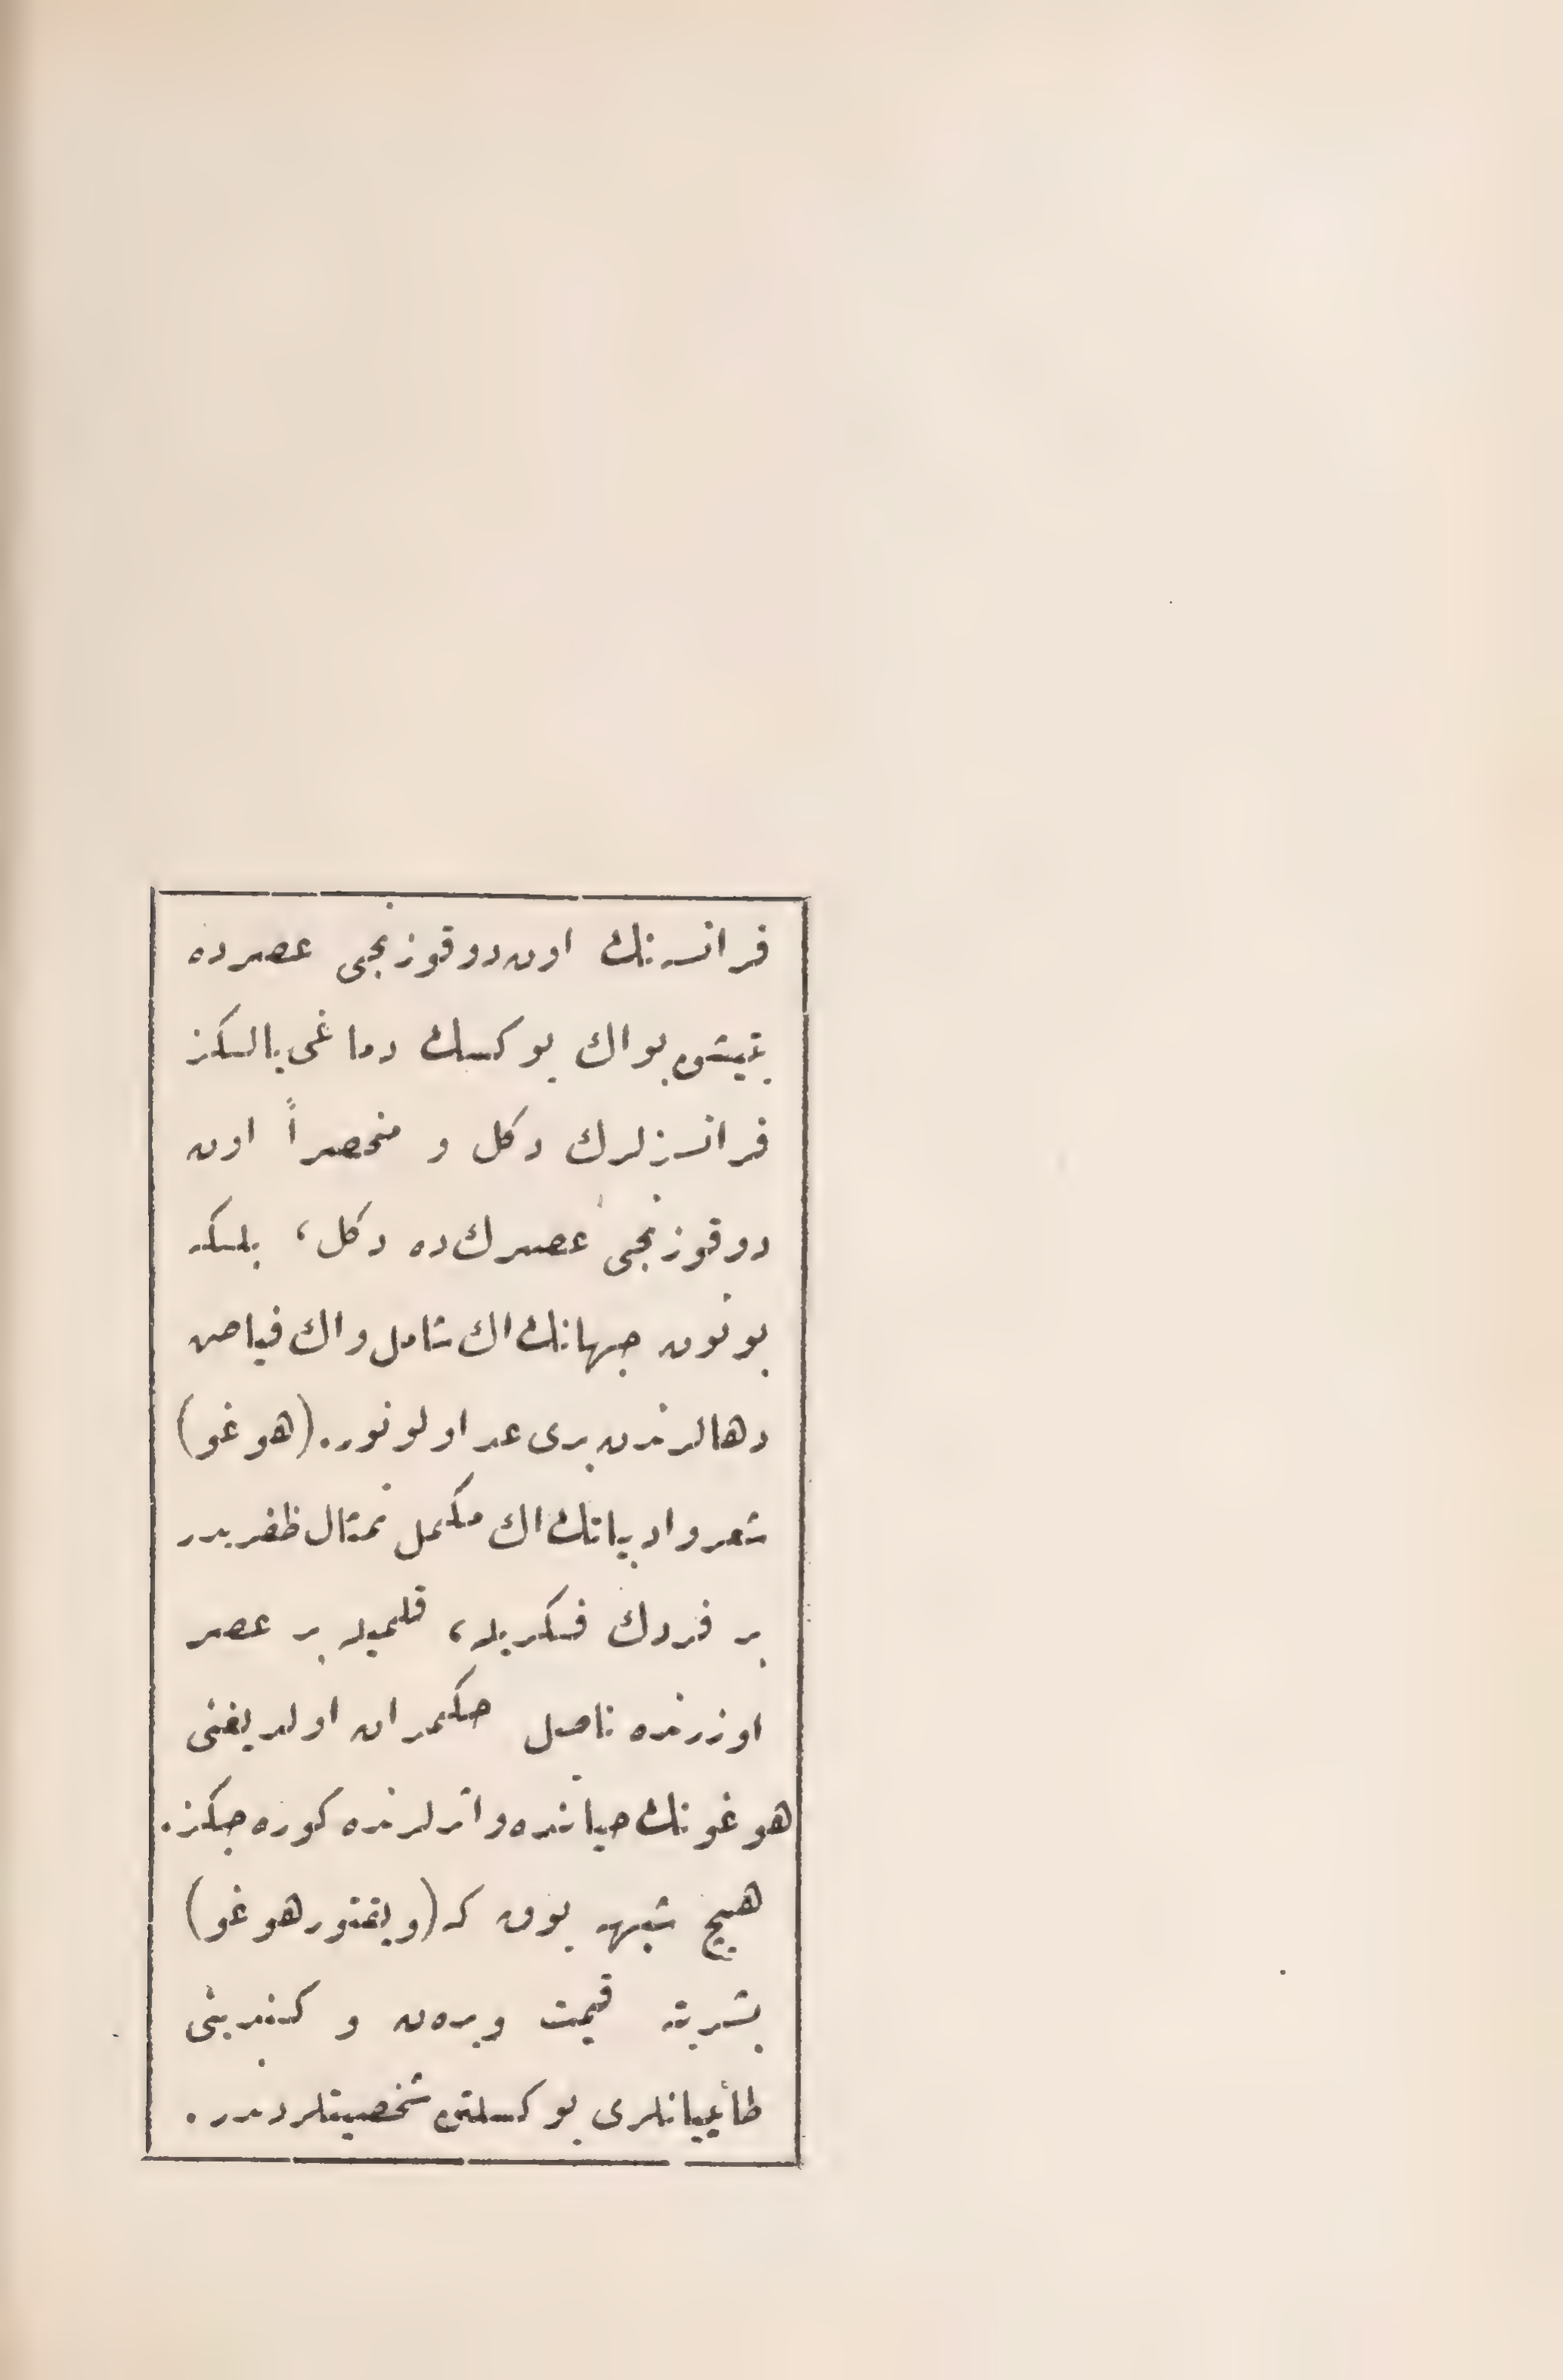 فرانسه‌نك اون دوقوزنجى عصرده
يتيشن بو اك يوكسك دماغى يالكز
فرانسزلرك دكل و منحصراً اون
دوقوزنجى عصرك ده دكل، بلكه
بوتون جهانك اك شامل و اك فياض
دهالرندن برى عد اولونور. (هوغو)
شعر و ادبياتك اك مكمل تمثال ظفريدر
بر فردك فكريله، قلميله بر عصر
اوزرنده ناصل حكمران اولديغنى
هوغونك حياتنده و اثرلرنده كوره‌جكز.
هيچ شبهه يوق كه (ويقتور هوغو)
بشريته قيمت ويره‌ن و كندينى
طانييانلرى يوكسلتن شخصيتلردندر.